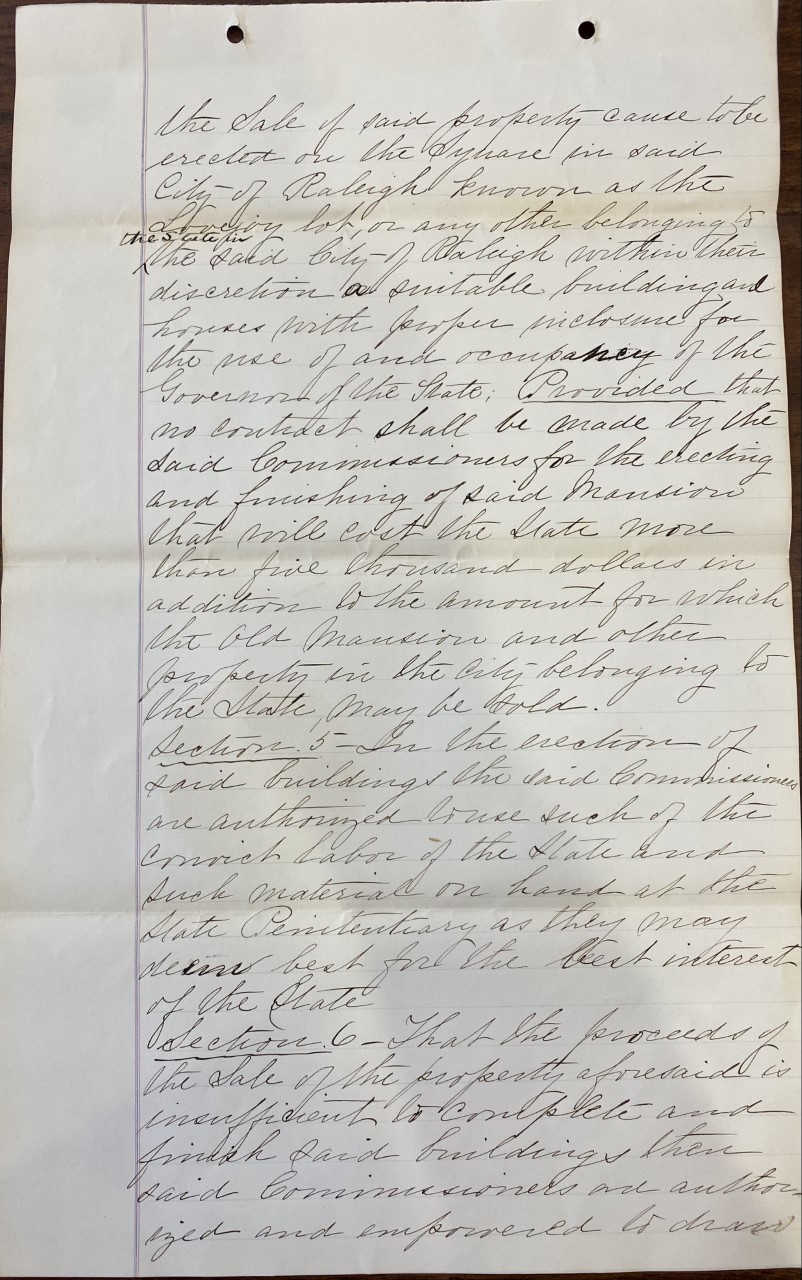 the Sale of said property cause to be
erected on the Square in said
City of Raleigh known as the
Lovejoy lot, or any other belonging to
the State in
the said City of Raleigh within their
discretion a suitable building and
houses with proper inclosure for
the use of and occupancy of the
Governor of the State; Provided that
no contract shall be made by the
said Commissioners for the erecting
and finishing of said Mansion
that will cost the State more
than five thousand dollars in
addition to the amount for which
the Old Mansion and other
property in the city belonging to
the State, may be sold.
Section. 5 - In the erection of
said buildings the said Commissioners
are authorized to use such of the
convict labor of the State and
such material on hand at the
State Penitentiary as they may
deem best for the best interest
of the State
Section. 6 - That the proceeds of
the Sale of the property aforesaid is
insufficient to complete and
finish said buildings then
said Commissioners are author-
ized and empowered to draw